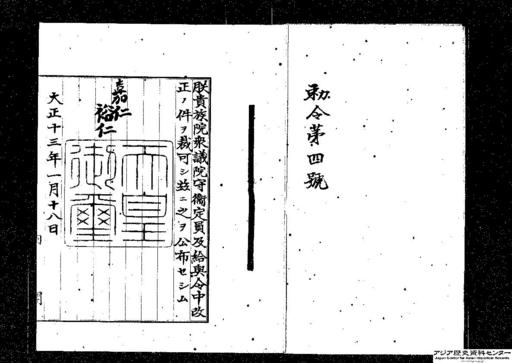 勅令第四號
朕貴族院衆議院守衞定員及給與令中改
正ノ件ヲ裁可シ玆ニ之ヲ公布セシム
嘉仁
裕仁
天皇
御璽
大正十三年一月十八日
アジア歴史資料センター
Japan Center for Asian Historical Records